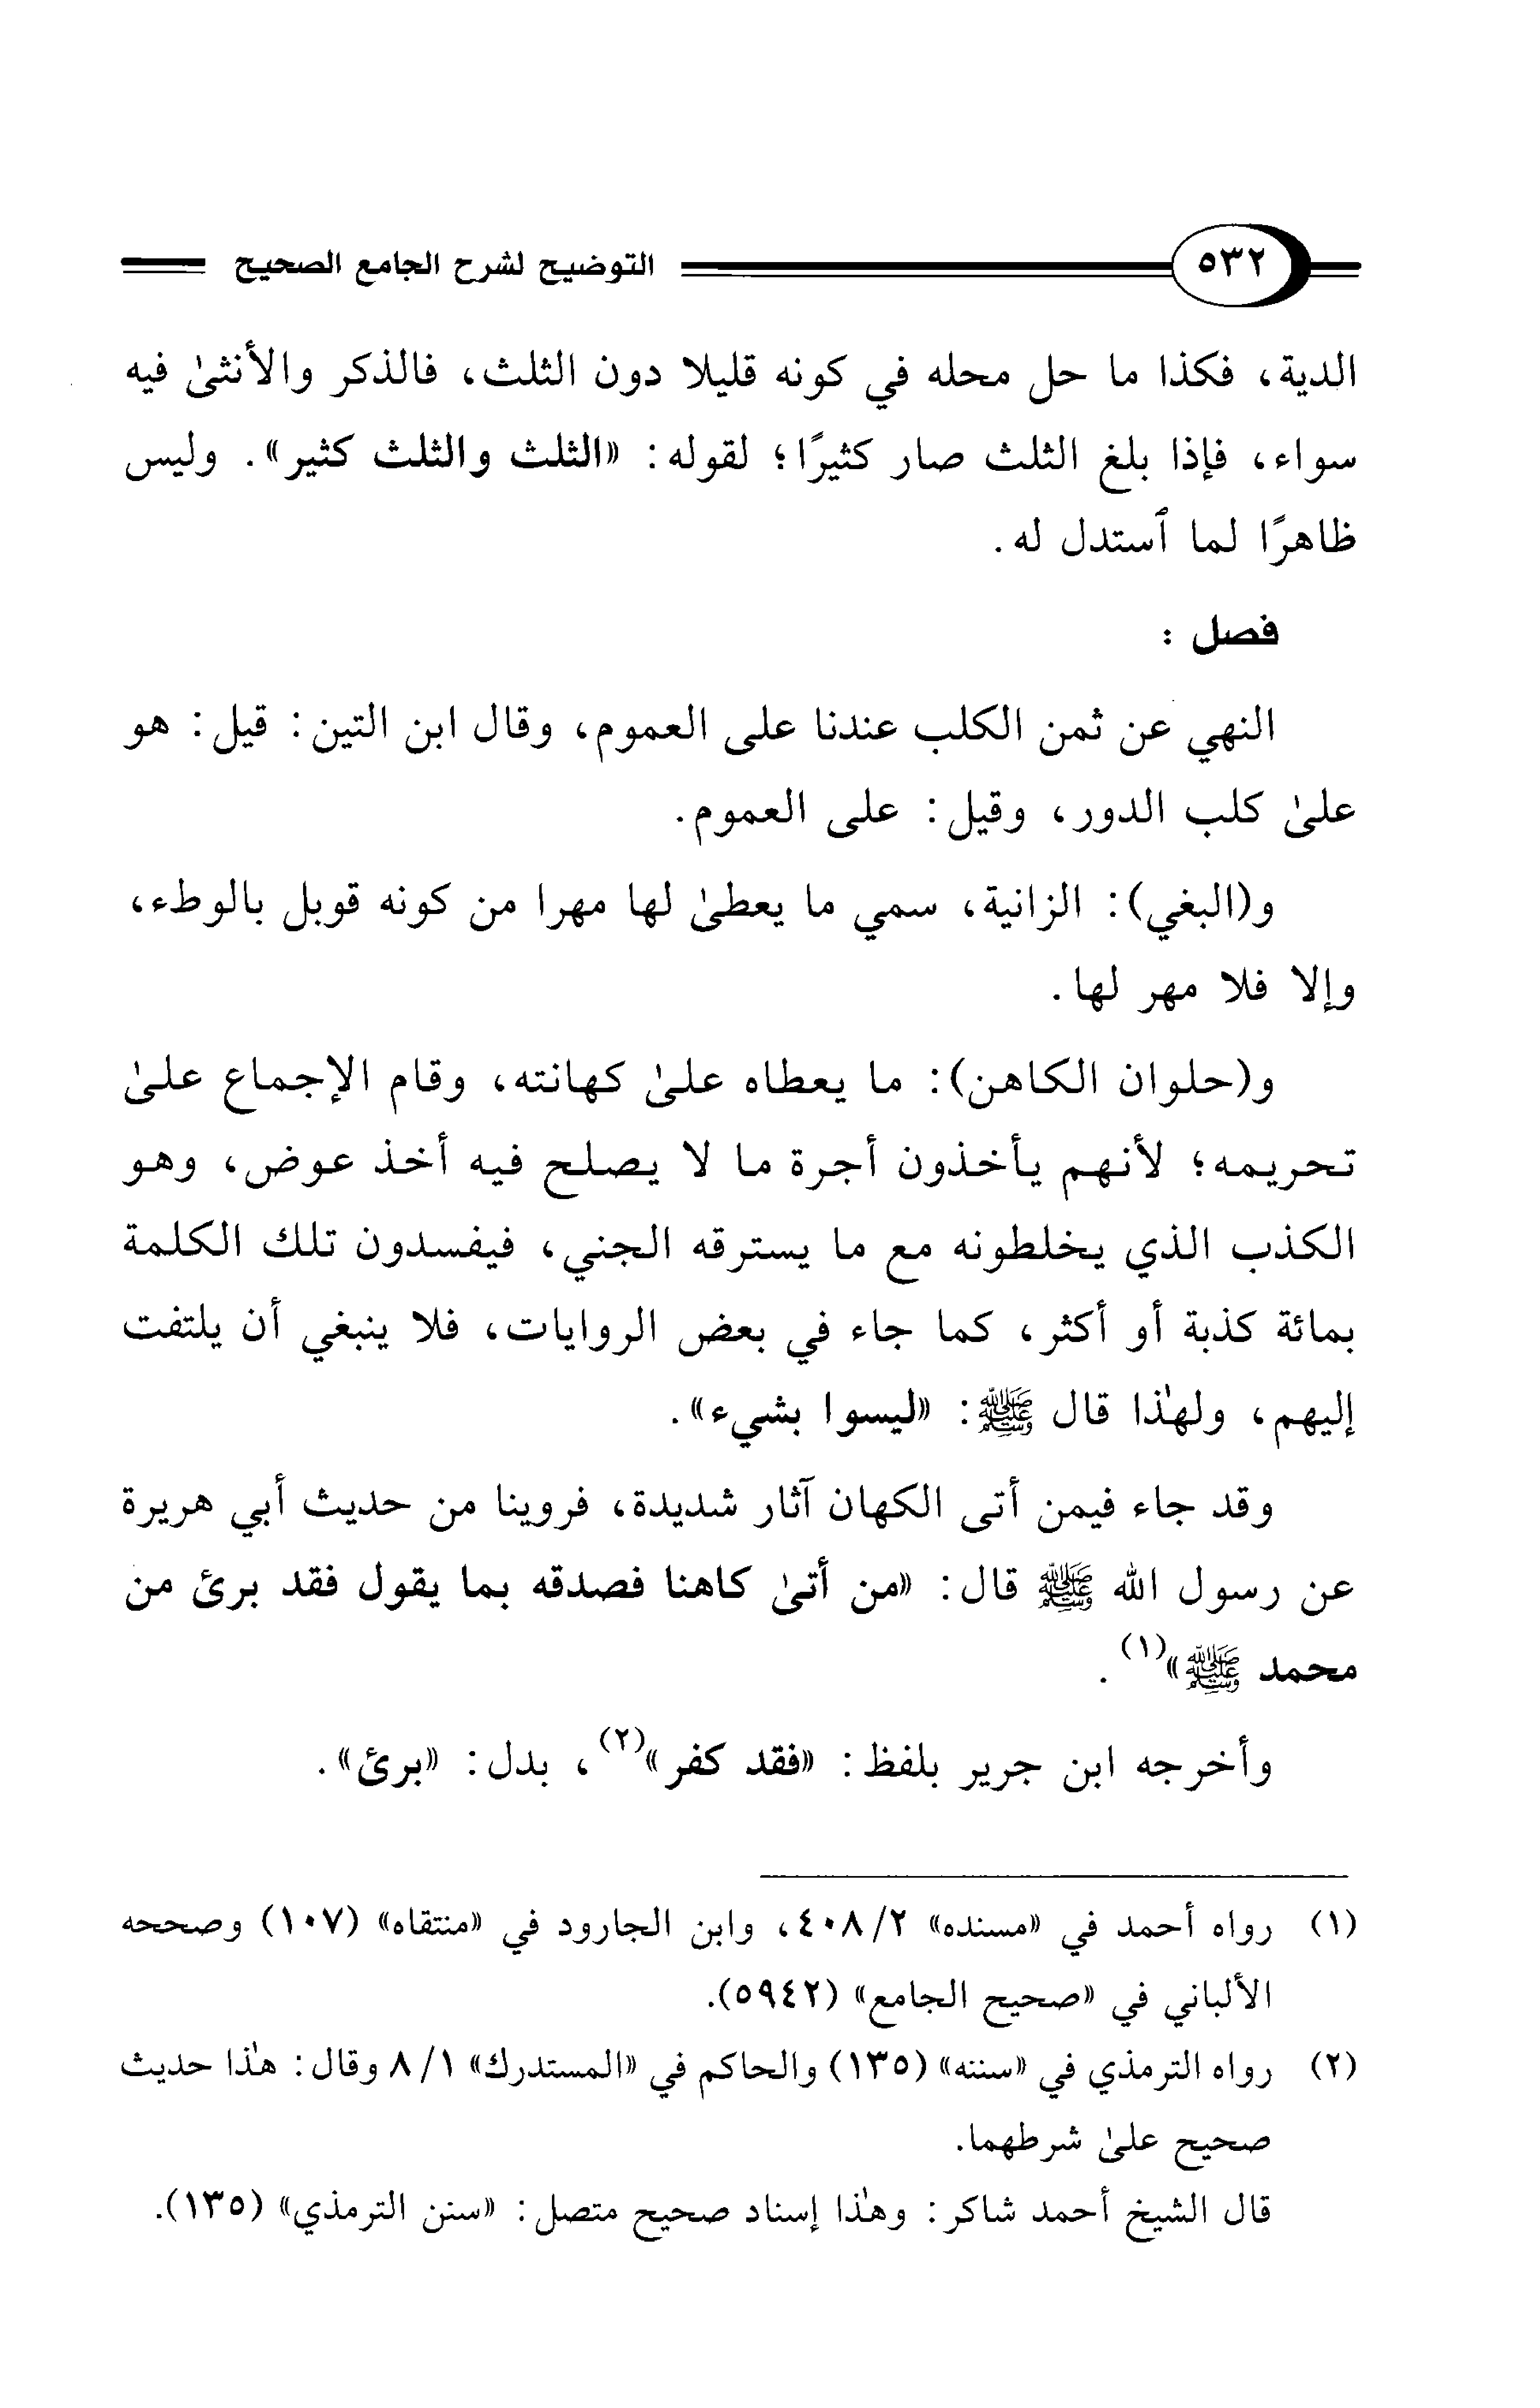 ٥٣٢ التوضيح لشرح الجامع الصحيح
الدية، فكذا ما حل محله في كونه قليلا دون الثلث، فالذكر والأنثىٰ فيه
سواء، فإذا بلغ الثلث صار كثيرًا؛ لقوله: «الثلث والثلث كثير». وليس
ظاهرًا لما ٱستدل له.
فصل :
النهي عن ثمن الكلب عندنا على العموم، وقال ابن التين: قيل: هو
علىٰ كلب الدور، وقيل: على العموم.
و(البغي): الزانية، سمي ما يعطىٰ لها مهرا من كونه قوبل بالوطء،
وإلا فلا مهر لها.
و(حلوان الكاهن): ما يعطاه علىٰ كهانته، وقام الإجماع علىٰ
تحريمه؛ لأنهم يأخذون أجرة ما لا يصلح فيه أخذ عوض، وهو
الكذب الذي يخلطونه مع ما يسترقه الجني، فيفسدون تلك الكلمة
بمائة كذبة أو أكثر، كما جاء في بعض الروايات، فلا ينبغي أن يلتفت
إليهم، ولهٰذا قال ﷺ: «ليسوا بشيء».
وقد جاء فيمن أتى الكهان آثار شديدة، فروينا من حديث أبي هريرة
عن رسول الله ﷺ قال: «من أتىٰ كاهنا فصدقه بما يقول فقد برئ من
محمد ﷺ»(١).
وأخرجه ابن جرير بلفظ: «فقد كفر»(٢)، بدل: «برئ».
(١) رواه أحمد في «مسنده» ٢/ ٤٠٨، وابن الجارود في «منتقاه» (١٠٧) وصححه
الألباني في «صحيح الجامع» (٥٩٤٢).
(٢) رواه الترمذي في «سننه» (١٣٥) والحاكم في «المستدرك» ١/ ٨ وقال: هٰذا حديث
صحيح علىٰ شرطهما.
قال الشيخ أحمد شاكر: وهٰذا إسناد صحيح متصل: «سنن الترمذي» (١٣٥).